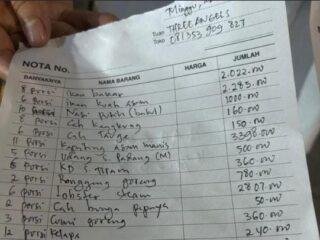 Minggu,
Tuan THREE ANGELS
Toko 081353 909 827
NOTA No.
BANYAKNYA NAMA BARANG HARGA JUMLAH
8 porsi Ikan bakar 2.022.000
6 porsi Ikan kuah asam 2.285.000
10 porsi Nasi putih (bakul) 1000.000
8 porsi Cah kangkung 160.000
6 porsi Cah Tauge 150.000
11 porsi Kepiting asam manis 3398.000
5 porsi Udang S. Padang (M) 500.000
porsi KD S. Tiram 360.000
2 porsi goreng 780.000
6 porsi Lobster steam 2807.000
2 porsi Cah bunga Pepaya 50.000
3 porsi Cumi goreng 360.000
12 porsi Kelapa 240.000